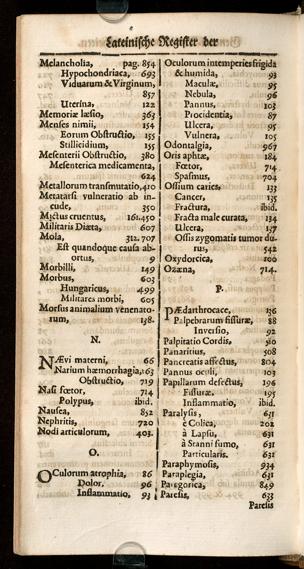 Lateinische Register der
Melancholia, pag. 854
Hypochondriaca, 693
Viduarum & Virginum,
857
Uterina, 122
Memoriæ læsio, 363
Menses nimii, 154
Eorum Obstructio, 155
Stillicidium, 155
Mesenterii Obstructio, 380
Mesenterica medicamenta,
624
Metallorum transmutatio, 410
Metatarsi vulneratio ab in-
cude, 350
Mictus cruentus, 161.450
Militaris Diæta, 607
Mola, 312.707
Est quandoque causa ab-
ortus, 9
Morbilli, 149
Morbus, 603
Hungaricus, 499
Militares morbi, 605
Morsus animalium venenato-
rum, 138.
N.
NÆvi materni, 66
Narium hæmorrhagia, 163
Obstructio, 719
Nasi fœtor, 714
Polypus, ibid.
Nausea, 852
Nephritis, 720
Nodi articulorum, 403.
O.
OCulorum atrophia, 86
Dolor, 96
Inflammatio, 93
Oculorum intemperies frigida
& humida, 93
Maculæ, 95
Nebula, 96
Pannus, 103
Procidentia, 87
Ulcera, 95
Vulnera, 105
Odontalgia, 967
Oris aphtæ, 184
Fœtor, 714
Spasmus, 704
Ossium caries, 133
Cancer, 135
Fractura, ibid.
Fracta male curata, 134
Ulcera, 137
Ossis zygomatis tumor du-
rus, 542
Oxydorica, 100
Ozæna, 714.
P.
PÆdarthrocace, 136
Palpebrarum fissuræ, 88
Inversio, 92
Palpitatio Cordis, 510
Panaritius, 508
Pancreatis affectus, 804
Pannus oculi, 103
Papillarum defectus, 196
Fissuræ, 195
Inflammatio, ibid.
Paralysis, 631
è Colica, 202
à Lapsu, 631
à Stanni fumo, 631
Particularis. 631
Paraphymosis, 934
Paraplegia, 631
Paregorica, 849
Paresis, 633
Paresis